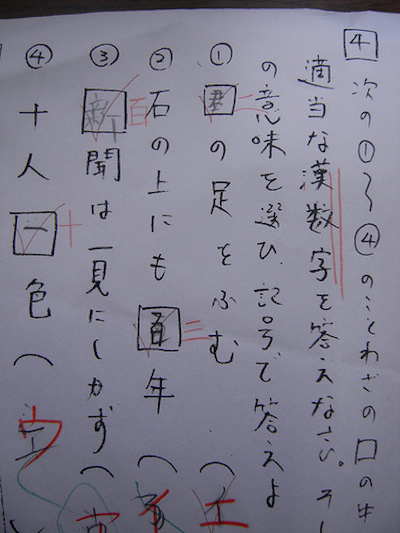 4 次の①〜④のことわざの口の中
適当な漢数字を答えなさい。そし
の意味を選び、記号で答えよ
① 君 二 の足をふむ（エ
② 石の上にも 百 三 年（イ
③ 新 百 聞は一見にしかず（
④ 十人 一 十 色（ウ